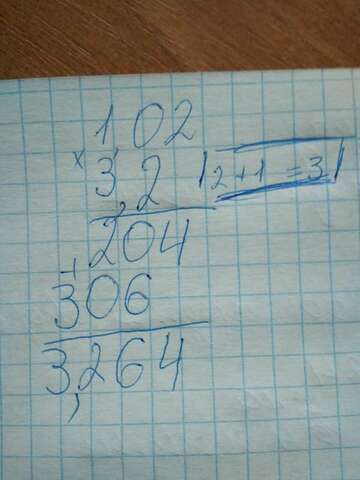 1,02
× 3,2 | 2+1 = 3 |
204
+
306
3,264